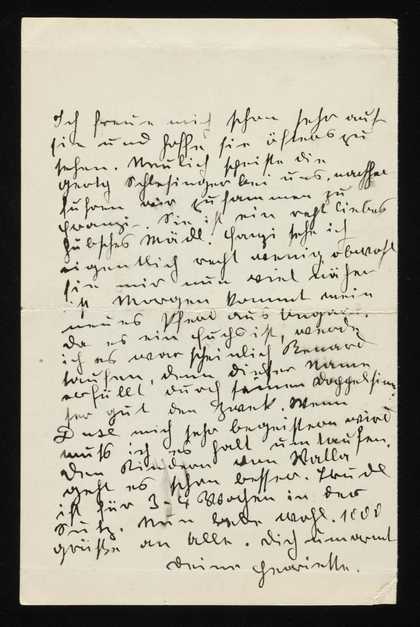 Ich freue mich schon sehr auf
sie und hoffe sie öfters zu
sehen. Neulich speiste die
Gerty Schlesinger bei uns, nachher
fuhren wir zusammen zu
Franzi. Sie ist ein recht liebes
hübsches Mädl. Franzi sehe ich
eigentlich recht wenig obwohl
sie mir nun viel näher
ist. Morgen kommt mein
neues Pferd aus Ungarn.
Da es ein Fuchs ist, werde
ich es warscheinlich Renard
taufen, denn dieser Name
erfüllt durch seinen Doppelsinn
sehr gut den Zweck. Wenn
mich sehr begeistern wird
muß ich es halt umtaufen.
Den Kindern von Walla
geht es schon besser. Trudl
ist für 3-4 Wochen in der
Nun lebe wohl. 1000
Grüße an alle. Dich umarmt
Deine Henriette.